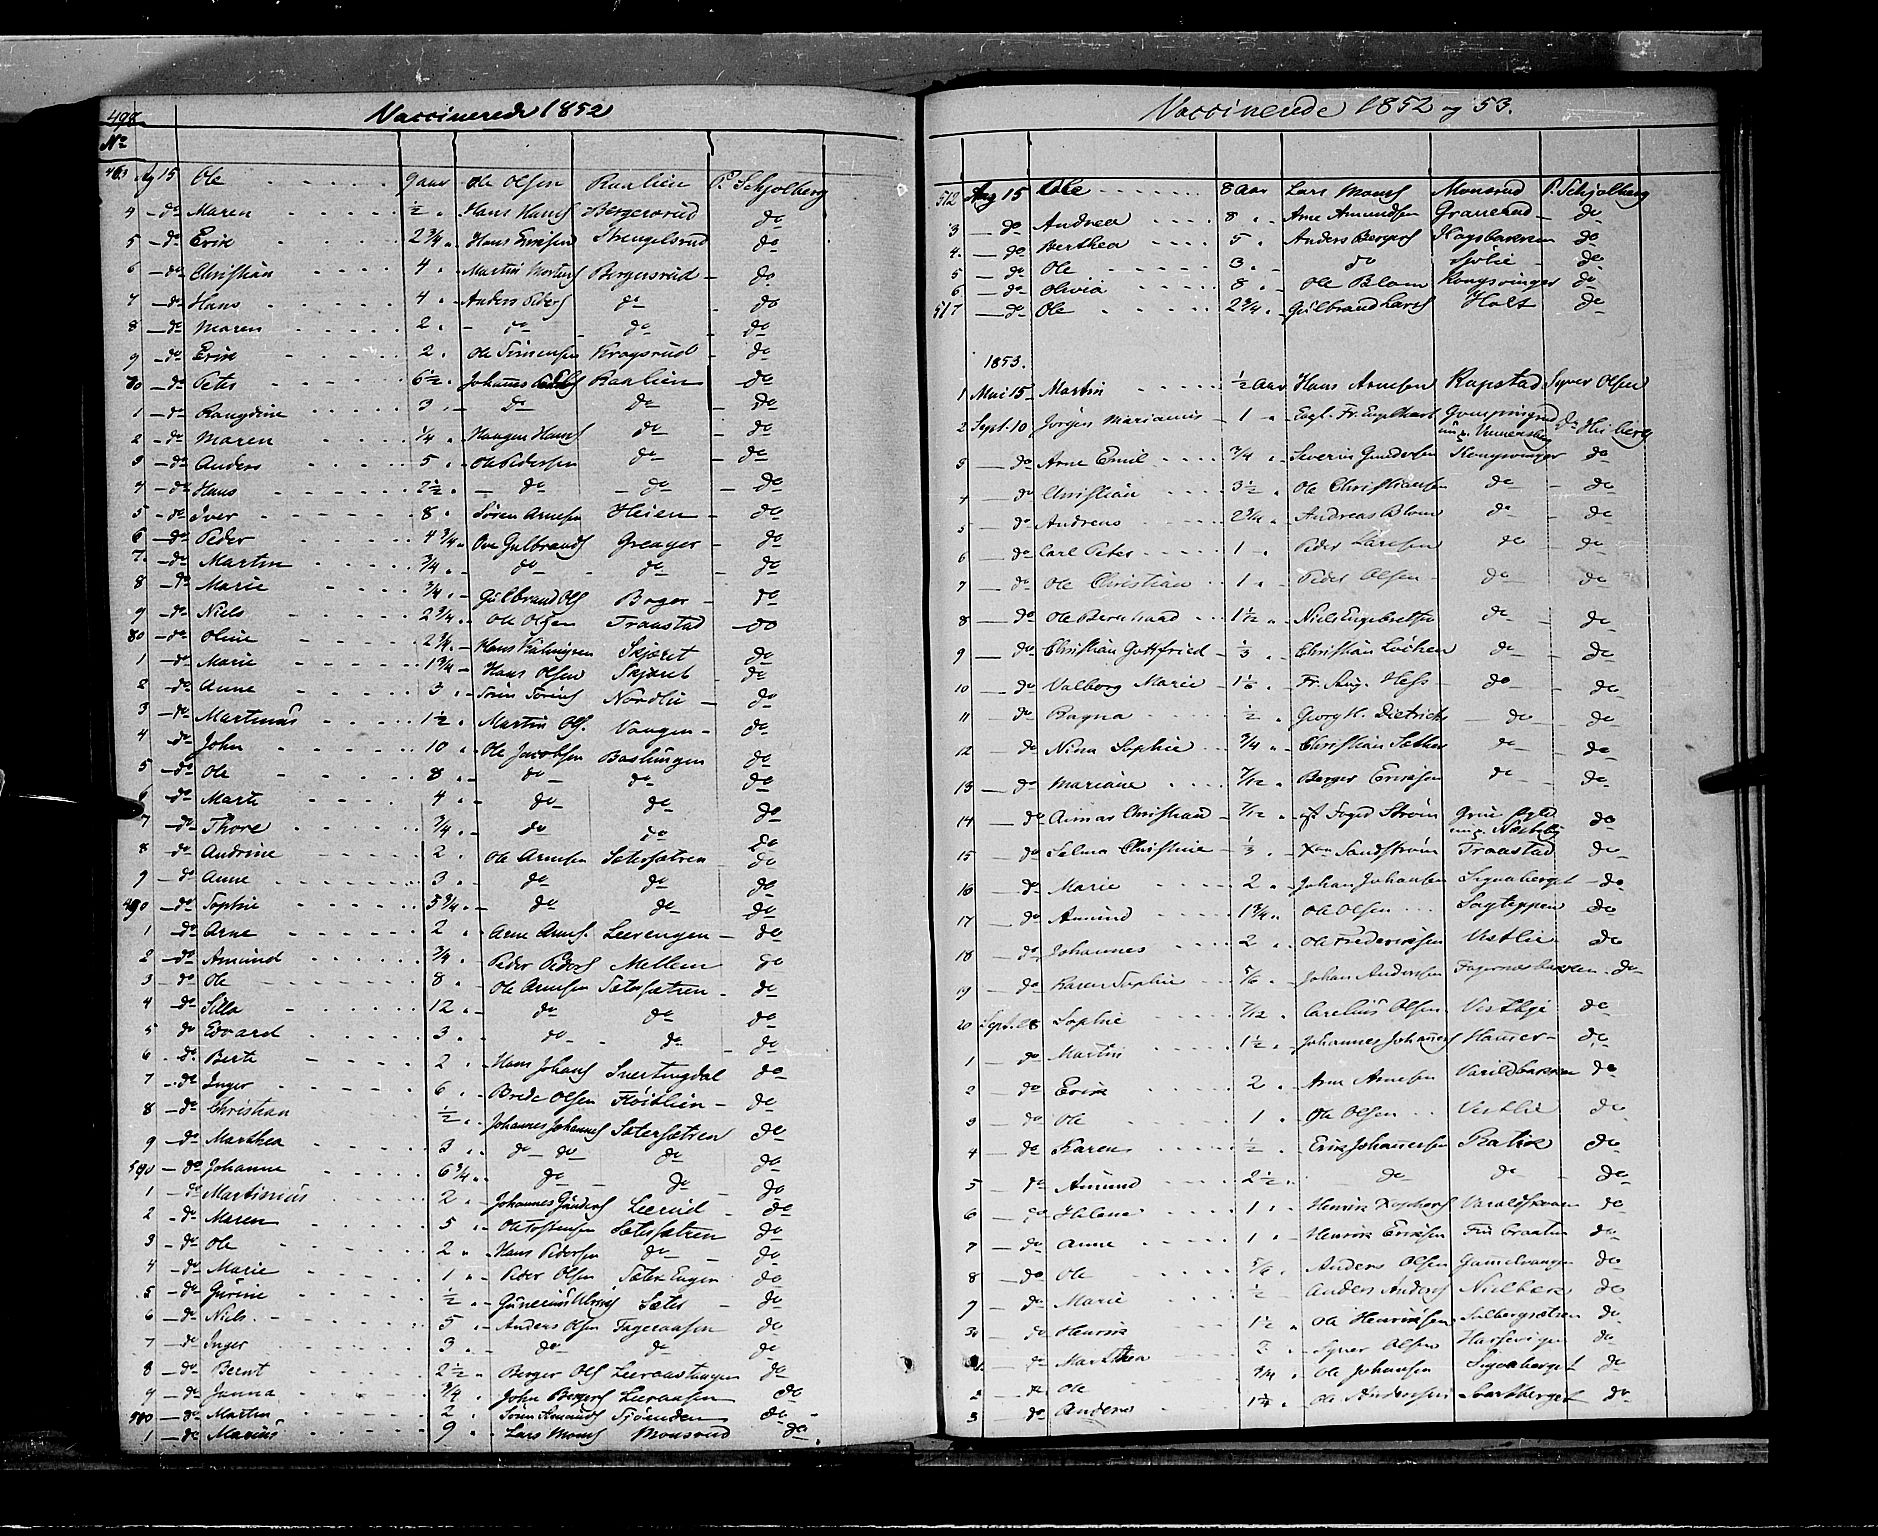 498
Vaccinerede 1852
No
463 Ag 15 Ole 9 aar Ole Olsen Raalien P. Schjølberg
4 - do Maren ½ " Hans Hans Bergersrud do
5 - do Erik 2¾ " Hans Eriksen Strengelsrud do
6 - do Christian 4 " Martin Bergersrud - do
7 - do Hans 4 " Anders Peders do - do
8 - do Maren 2 " - do - do - do
9 - do Erik 2 " Ole Simensen Kragsrud - do
70 - do Peter 6½ " Johannes Raalien - do
1 - do Rangdine 3 " - do do - do
2 - do Maren ¼ " Haagen Hans do - do
3 - do Anders 5 " Ole Pedersen do - do
4 - do Hans 2½ " - do - do - do
5 - do Iver 8 " Søren Arnesen Heien - do
6 - do Peder 4¾ " Ove Gulbrands Greager - do
7 - do Martin ¾ " - do - do - do
8 - do Marie ¾ " - Gulbrand Ols Boger - do
9 - do Niels 2¾ " Ole Olsen Traastad - do
80 - do Oline 2¾ " - Hans Skjæret do
1 - do Marie 1¾ - Hans Olsen Skjæret - do
2 - do Anne 3 " - Nordlie - do
3 - do Martinus 1½ " Martin Ols. Vangen - do
4 - do John 10 " Ole Jacobsen Baslungen do
5 - do Ole 8 " - do - do do
6 - do Marte 4 " - do do do
7 - do Thore ¾ " - do do do
8 - do Andrine 2 " Ole Arnesen Sætersætren do
9 - do Anne 3 " - do do do
490 - do Sophie 5¾ " - do do do
1 - do Arne 2 " Arne Arnes. Leerengen - do
2 - do Amund ¾ " Peder Peders Mellem do
3 - do Ole 8 " Ole Arnesen Sætersætren - do
4 - do Silla 12 " - do do do
5 do Edvard 3 " do - do - do
6 - do Berte 2 " Hans Johans Svertingdal do
7 - do Inger 6 " Brede Olsen - do
8 - do Christian ½ " Johannes Johannes Sætersætren do
9 - do Marthea 3 " do - do do do
590 - do Johanne 6¾ " do do - do
1 - do Martinius 2 " Johannes Leerud - do
2 - do Maren 5 " Ole Tostensen Sætersætren do
3 - do Ole 2 " Hans Pedersen do - do
4 - do Marie 1 " Peder Olsen Sæter Enger do
5 - do Gurine ½ " Sæter - do
6 - do Niels 5 " Anders Olsen Fageraasen do
7 - do Inger 3 " do - do do
8 - do Bernt 2½ " Berger Ols Leeraastangen do
9 - do Janna ¾ " John Bergers Leeraasen do
500 - do Martin 2 " Søren Amunds Sjøenden do
1 - do Marius 9 " Lars Mons Monsrud do
Vaccinerede 1852 og 53.
512 Aug 15 Ole 8 aar Lars Mons Monsrud P. Schjølberg
3 - do Andrea 8 " Arne Amundsen Granerud - do
4 - do Berthea 5 " Anders Bergers do
5 - do Ole 3 " do Sølie - do
6 - do Olivia 8 " - Ole Blom Kongsvinger do
517 - do Ole 2¾ " Gulbrand Lars Holt do
1853.
1 Mai 15 Martin ½ aar Hans Arnesen Rapstad Syver Olsen
2 Sept. 10 Jørgen Marianus - 1 " Engl. Fr. Engelhart
Do Hiberg
3 - do Arne Emil ¾ " Severin Gundersen Kongsvinger do
4 - do Christian 3½ " Ole Christiansen do - do
5 - do Andreas 2¾ " Andreas Blom do - do
6 - do Carl Peter 1 " Peder Larssen do - do
7 - do Ole Christian 1 " Peder Olsen - do - do
8 - do Ole Bernhard 1½ " Niels Engebretsen do - do
9 - do Christian Gottfried - ⅓ " Christian Løchen do - do
10 - do Valborg Marie - 1⅙ " Fr. Aug. Hess do - do
11 - do Ragna ½ " Georg H. Dietrichs - do - do
12 - do Nina Sophie ¾ " Christian Sæther do - do
13 - do Mariane 7/12 " Berger Eriksen do - do
14 - do Christian - 7/12 " Foged Strøm do
15 - do Selma Christine - ⅓ " Sandstrøm Traastad do
16 - do Marie 2 " Johan Johansen Signaberget - do
17 - do Amund 1¾ " Ole Olsen Sagteppen do
18 - do Johannes 2 " Ole Frederiksen Vestlie do
19 - do Karen Sophie 5/6 " Johan Andersen Fagernesbakken do
20 Sept. 28 Sophie 7/12 " Carelius Olsen Vestbye do
1 - do Martin 1½ " Johannes Johannes Hammer - do
2 - do Erik 2 " Arne Arnesen Varildbakken do
3 - do Ole 1 " Ole Olsen Vestlie do
4 - do Karen ½ " Erik Johannessen do
5 - do Amund 2½ " do do - do
6 - do Helene 1 " Henrik do
7 - do Anne 1 " Henrik Eriksen do
8 - do Ole 5/6 " Anders Olsen Gammelvangen do
9 - do Marie ½ " Anders Anders do
30 - do Henrik 1½ " Ole Henriksen do
1 - do Marthea 3 " Syver Olsen do
2 - do Ole ¾ " Ole Johansen Signaberget do
3 do Anders 1¼ " Ole Andersen Svartberget do